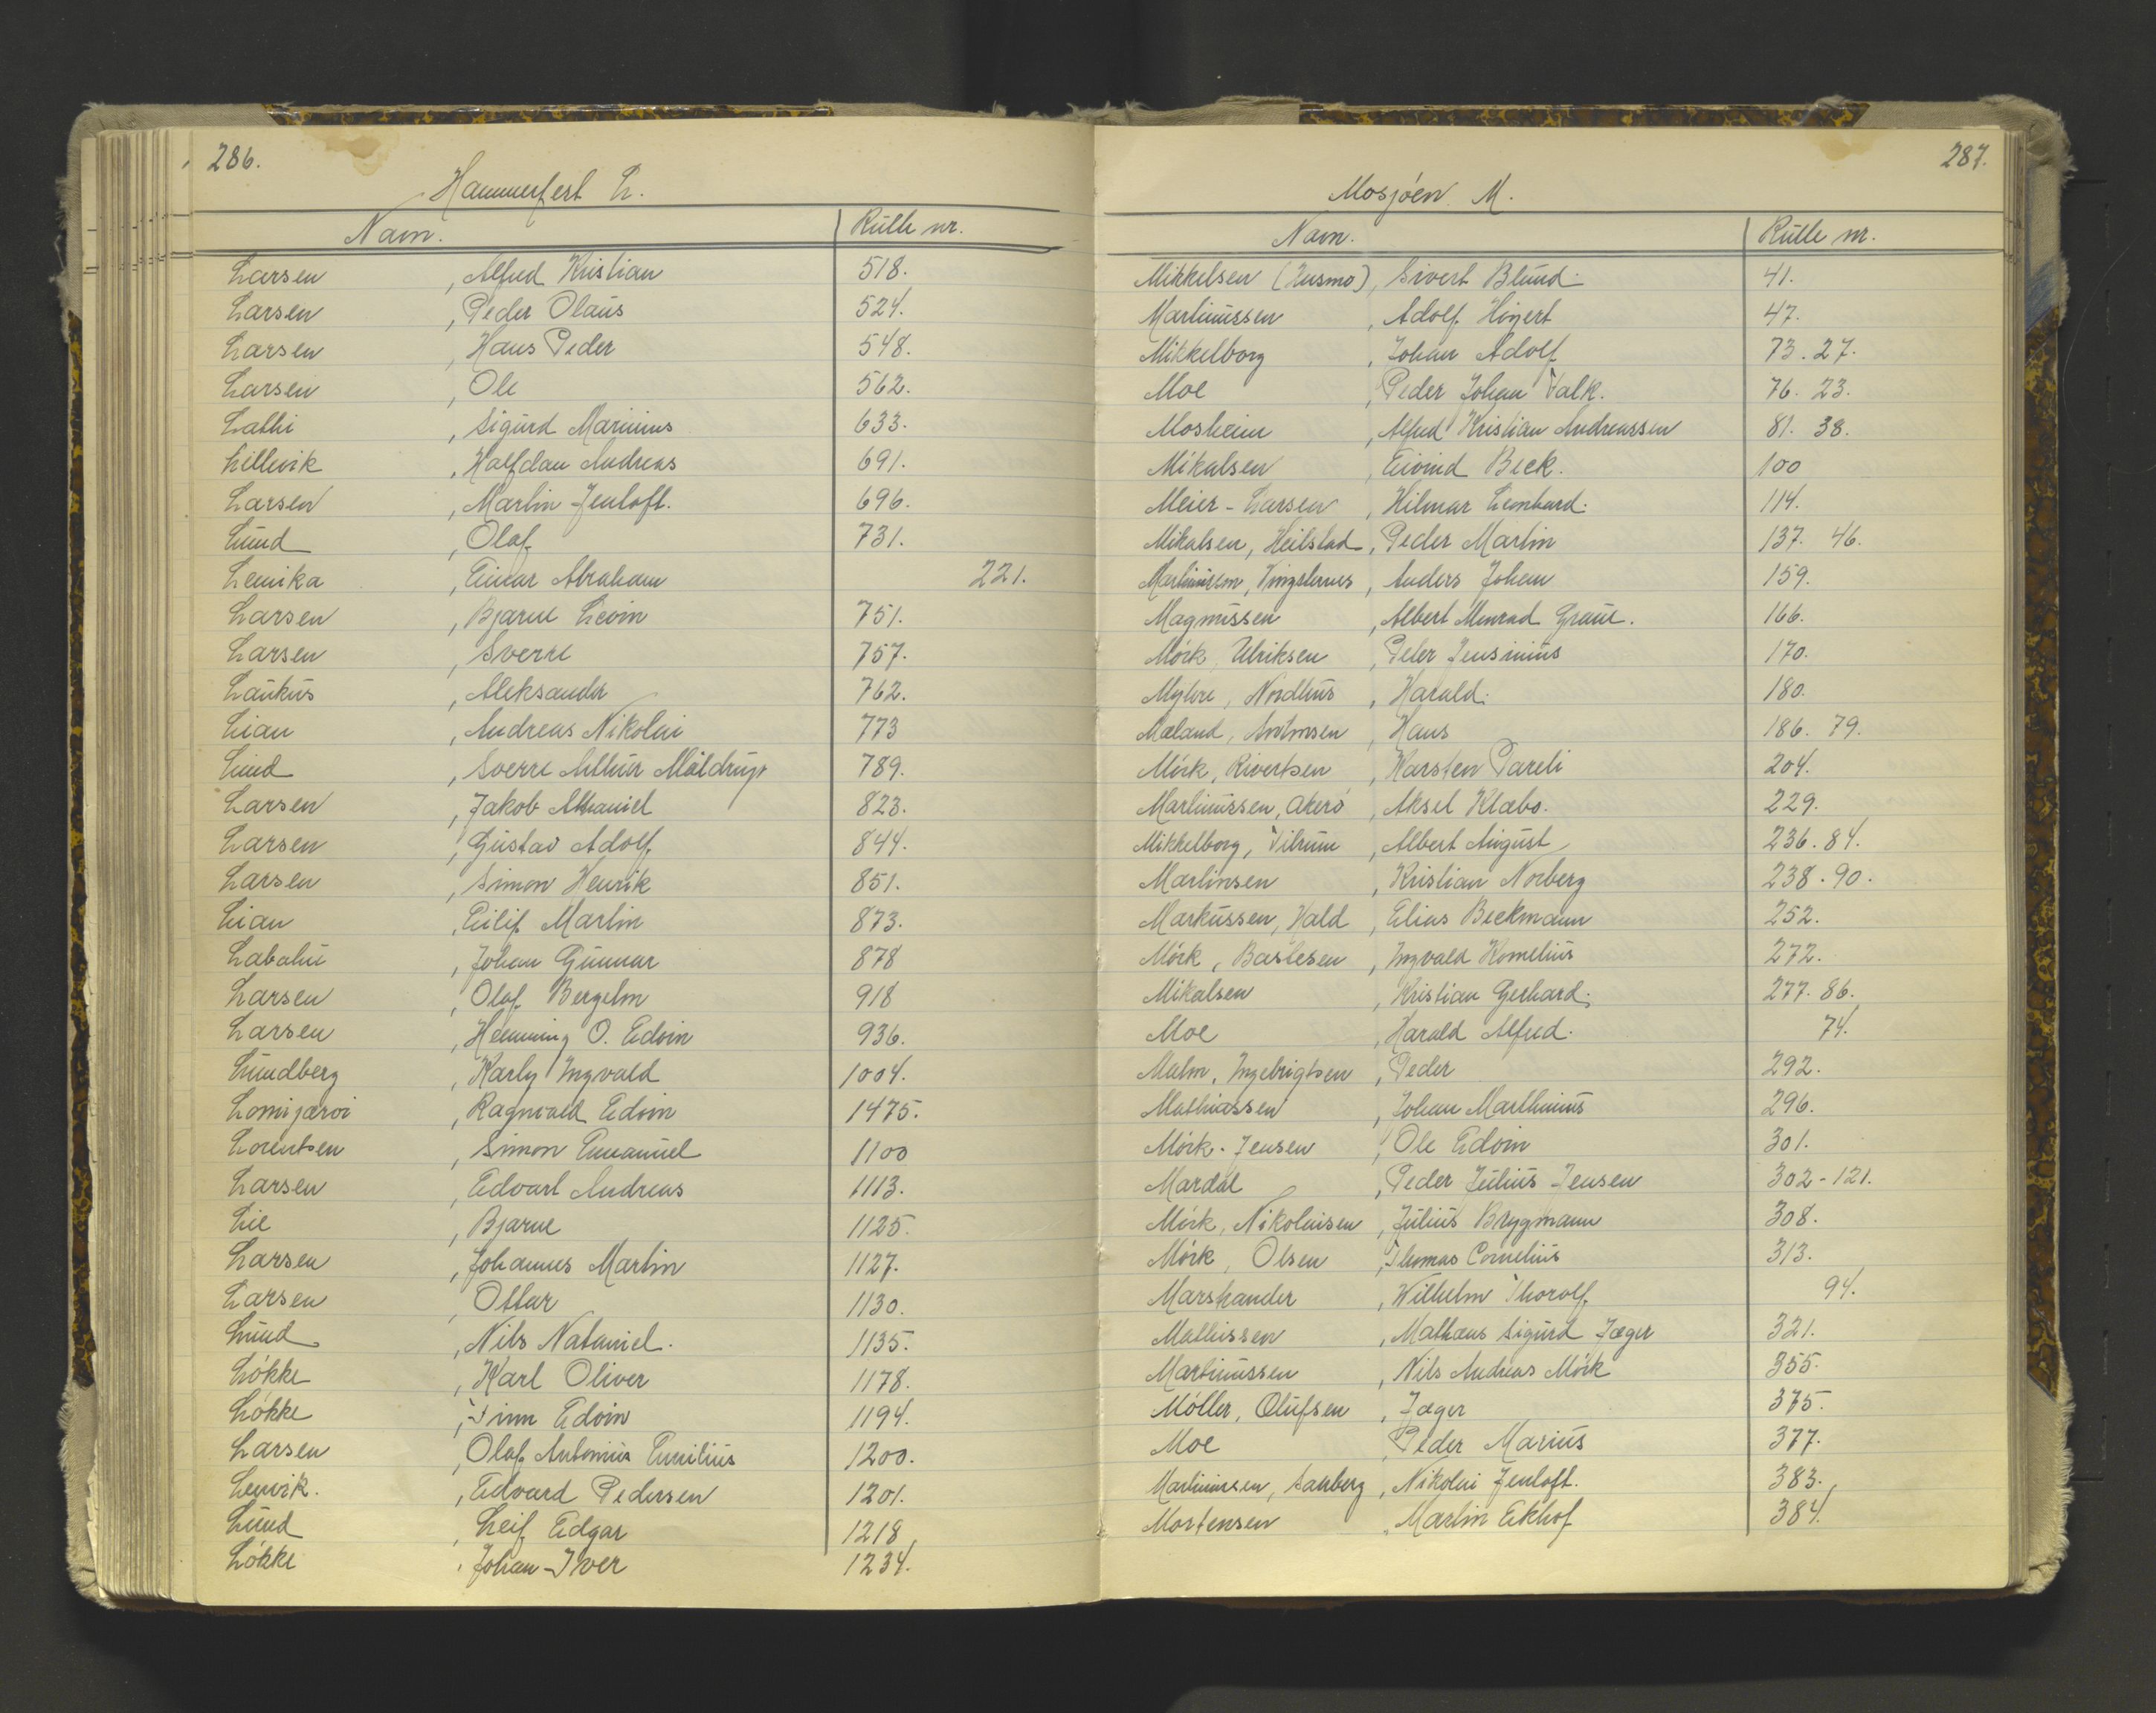 286.
Hammerfest L.
Navn. Rulle nr.
Larsen , Alfred Kristian 518.
Larsen , Peder Olaus 524.
Larsen , Hans Peder 548.
Larsen , Ole 562.
Lathi , Sigurd Marinius 633.
Lillevik , Halfdan Andreas 691.
Larsen , Martin Jentoft. 696.
Lund , Olaf 731.
Lemika , Einar Abraham 221.
Larsen , Bjarne Levin 751.
Larsen , Sverre 757.
Laukus , Aleksander 762.
Lian , Andreas Nikolai 773
Lund , Sverre Arthur Maldrup 789.
Larsen , Jakob Athaniel 823.
Larsen , Gustav Adolf 844.
Larsen , Simon Henrik 851.
Lian , Eilif Martin 873.
Labahu , Johan Gunnar 878
Larsen , Olaf Bergelm 918
Larsen , Hemming O. Edvin 936.
Lundberg , Karly Ingvald 1004.
Lomijærvi , Ragnvald Edvin 1475.
Lorentsen , Simon Emanuel 1100
Larsen , Edvart Andreas 1113.
Lie , Bjarne 1125.
Larsen , Johannes Martin 1127.
Larsen , Ottar 1130.
Lund , Nils Nataniel. 1135.
Løkke , Karl Oliver 1178.
Løkke , Finn Edvin 1194.
Larsen , Olaf Antonius Emilius 1200.
Lenvik. , Edvard Pedersen 1201.
Lund , Leif Edgar 1218
Løkke , Johan Iver 1234.
287.
Mosjöen M.
Navn. Rulle nr.
Mikkelsen (Husmo), Sivert Blund. 41.
Martinussen , Adolf Högert 47.
Mikkelborg , Johan Adolf 73. 27.
Moe , Peder Johan Falk. 76. 23.
Mosheim , Alfred Kristian Andreassen 81. 38.
Mikalsen , Eivind Beck. 100
Meier-Larsen , Hilmar Leonhard. 114.
Mikalsen, Heilstad , Peder Martin 137. 46.
Martinussen, , Anders Johan 159.
Magnussen , Albert Monrad Graue. 166.
Mörk, Ulriksen , Peter Jensinius 170.
Myhre, Nordhus , Harald. 180.
Mæland, Antonsen , Hans 186. 79.
Mörk, Rivertsen , Karsten Pareli 204.
Martinussen, Akerö , Aksel Klæbo. 229.
Mikkelborg, Vilrum , Albert August 236. 84.
Martinsen , Kristian Norberg 238. 90.
Markussen, Vald , Elias Beckmann 252.
Mörk, Bastesen , Ingvald Kornelius 272.
Mikalsen , Kristian Gerhard. 277. 86.
Moe , Harald Alfred. 74.
Malm, Ingebrigtsen , Peder 292.
Mathiassen , Johan Marthinus 296.
Mörk-Jensen , Ole Edvin 301.
Mardal , Peder Julius Jensen 302-121.
Mörk, Nikolaisen , Julius Brygmann 308.
Mörk, Olsen , Thomas Cornelius 313.
Marshander , Wilhelm Thorolf 94.
Mathissen , Mathæus Sigurd Jæger 321.
Martinussen , Nils Andreas Mörk 355.
Möller, Olufsen , Jæger 375.
Moe , Peder Marius 377.
Martinussen, Sanberg , Nikolai Jentoft. 383.
Mortensen , Martin Ekhof 384.